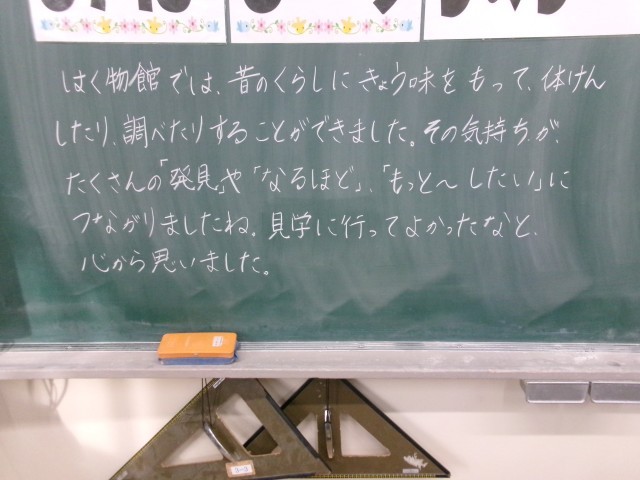 はく物館では、昔のくらしにきょう味をもって、体けん
したり、調べたりすることができました。その気持ちが、
たくさんの「発見」や「なるほど」、「もっと～したい」に
つながりましたね。見学に行ってよかったなと、
心から思いました。